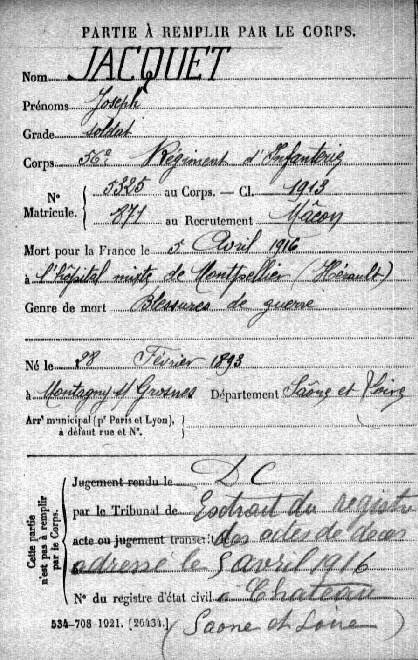 PARTIE À REMPLIR PAR LE CORPS.
Nom JACQUET
Prénoms Joseph
Grade soldat
Corps 56e Régiment d'Infanterie
N° Matricule. { 5325 au Corps. — Cl. 1913
871 au Recrutement Mâcon
Mort pour la France le 5 Avril 1916
à l'hôpital mixte de Montpellier (Hérault)
Genre de mort Blessures de guerre
Né le 28 Février 1893
à Montagny s/ Grosnes Département Saône et Loire
Arr' municipal (p' Paris et Lyon), à défaut rue et N°.
Cette partie n'est pas à remplir par le Corps.
Jugement rendu le D C
par le Tribunal de Extrait du registre
acte ou jugement transcrit des actes de décès
adressé le 5 avril 1916
N° du registre d'état civil à Chateau
534-708-1921. [26434.] (Saone et Loire)